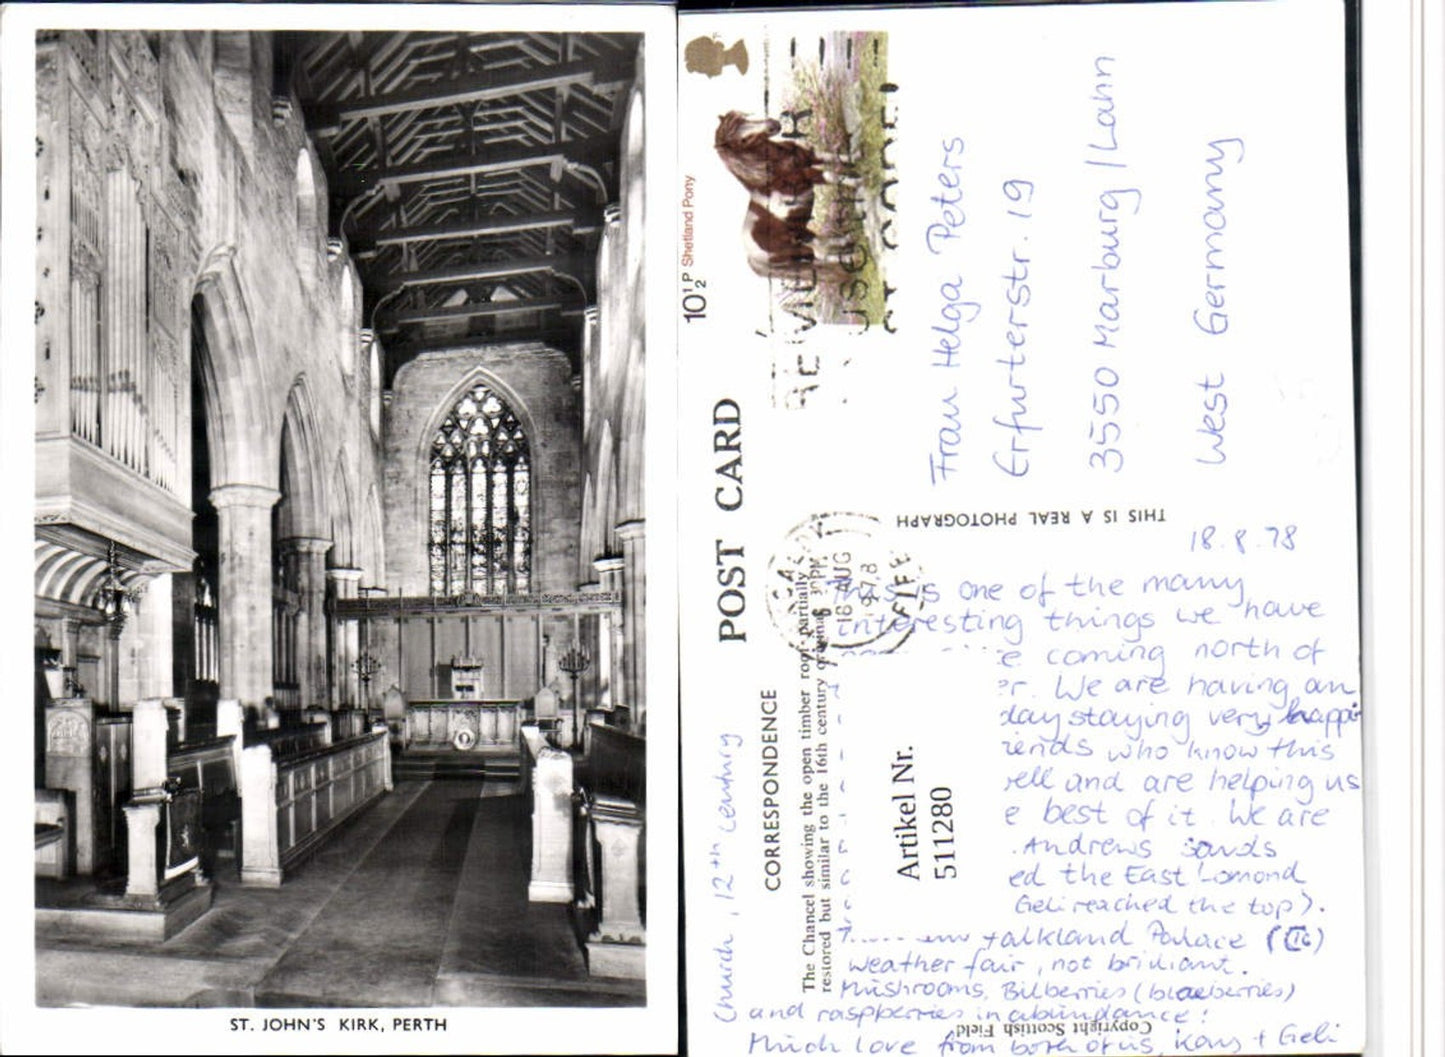 ST. JOHN'S KIRK, PERTH
10½P Shetland Pony
POST CARD
CORRESPONDENCE
The Chancel showing the open timber roof partially
restored but similar to the 16th century original.
THIS IS A REAL PHOTOGRAPH
Copyright Scottish Field
18 AUG
1978
FIFE
Frau Helga Peters
Erfurterstr. 19
3550 Marburg/Lahn
West Germany
Artikel Nr.
511280
Church, 12th century
18.8.78
This is one of the many
interesting things we have
e coming north of
er. We are having an
day staying very happi
iends who know this
ell and are helping us
e best of it. We are
. Andrews sands
ed the East Lomond
Geli reached the top).
Falkland Palace (16)
Weather fair, not brilliant.
Mushrooms, Bilberries (blaeberries)
and raspberries in abundance!
Much love from both of us, Kay + Geli